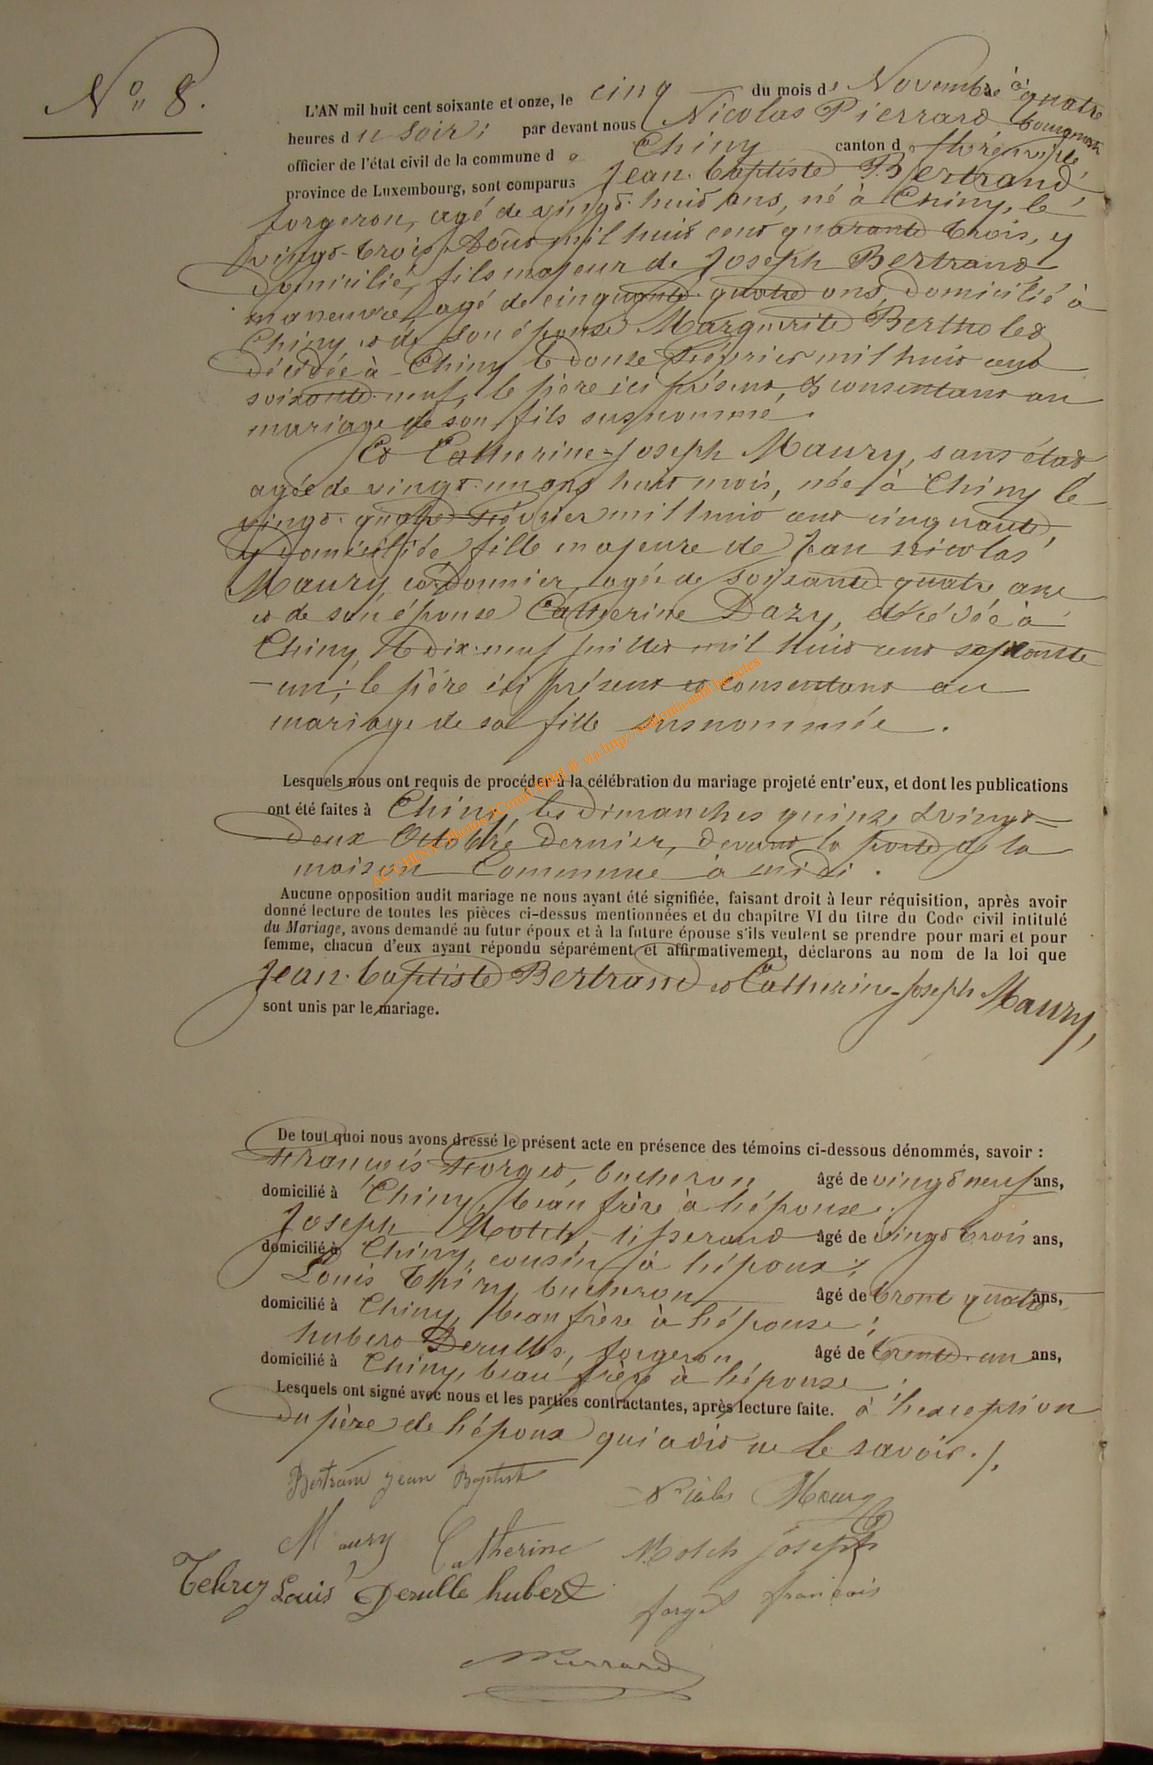 N° 8.
L'AN mil huit cent soixante et onze, le cinq du mois de Novembre à quatre
heures du soir; par devant nous Nicolas Pierrard bourgmestre
officier de l'état civil de la commune de Chiny canton de florenville
province de Luxembourg, sont comparus Jean-baptiste Bertrand,
forgeron, agé de vingt-huit ans, né à Chiny, le
vingt-trois Aout mil huit cent quarante trois, y
domicilié, fils majeur de Joseph Bertrand
maneuvre, agé de cinquante-quatre ans, domicilié à
Chiny et de son épouse Marguerite Bertholet
décédée à Chiny le douze février mil huit cent
soixante-neuf, le père ici présent, et consentant au
mariage de son fils susnommé.
Et Catherine-Joseph Maury, sans état
agée de vingt-un ans huit mois, née à Chiny le
vingt-quatre février mil huit cent cinquante,
y domiciliée, fille majeure de Jean nicolas
Maury, cordonnier, agée de soixante-quatre ans
et de son épouse Catherine Dazy, décédée à
Chiny, le dix-neuf juillet mil huit cent septante
-un; le père ici présent et consentant au
mariage de sa fille susnommée.
Lesquels nous ont requis de procéder à la célébration du mariage projeté entr'eux, et dont les publications
ont été faites à Chiny, les dimanches quinze & vingt-
deux Octobre dernier, devant la porte de la
maison Commune à midi.
Aucune opposition audit mariage ne nous ayant été signifiée, faisant droit à leur réquisition, après avoir
donné lecture de toutes les pièces ci-dessus mentionnées et du chapitre VI du titre du Code civil intitulé
du Mariage, avons demandé au futur époux et à la future épouse s'ils veulent se prendre pour mari et pour
femme, chacun d'eux ayant répondu séparément et affirmativement, déclarons au nom de la loi que
Jean-baptiste Bertrand et Catherine-Joseph Maury,
sont unis par le mariage.
De tout quoi nous avons dressé le présent acte en présence des témoins ci-dessous dénommés, savoir :
François Forget, bucheron âgé de vingt neuf ans,
domicilié à Chiny, beau frère à l'épouse;
Joseph Motch, tisserand âgé de vingt trois ans,
domicilié à Chiny, cousin à l'époux;
Louis Thiry, bucheron âgé de trente quatre ans,
domicilié à Chiny, beau frère à l'épouse;
hubert Derulle, forgeron âgé de trente-un ans,
domicilié à Chiny, beau frère à l'épouse;
Lesquels ont signé avec nous et les parties contractantes, après lecture faite. à l'exception
du père de l'époux qui a dit ne le savoir./.
Bertrand Jean Baptiste
Nicolas Maury
Maury Catherine
Motch Joseph
Louis Derulle hubert
forget francois
Pierrard